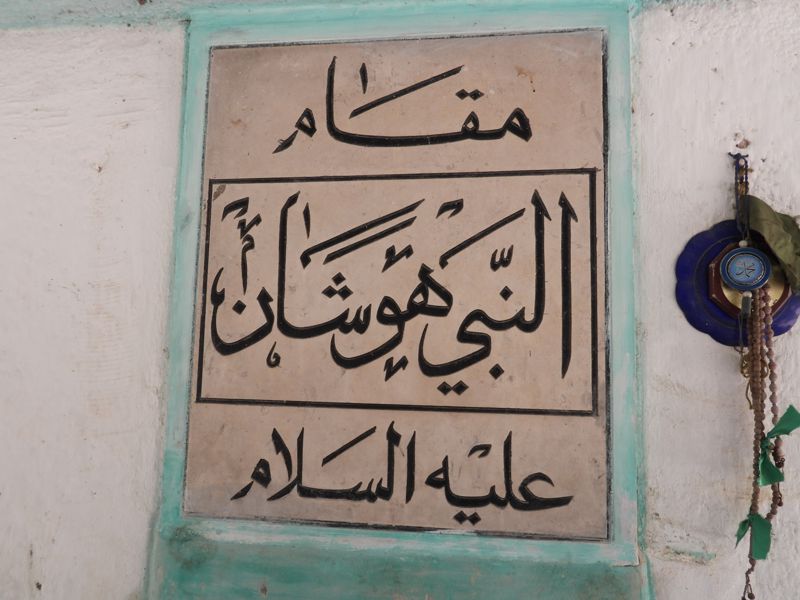 مقام
النبي هوشان
عليه السلام